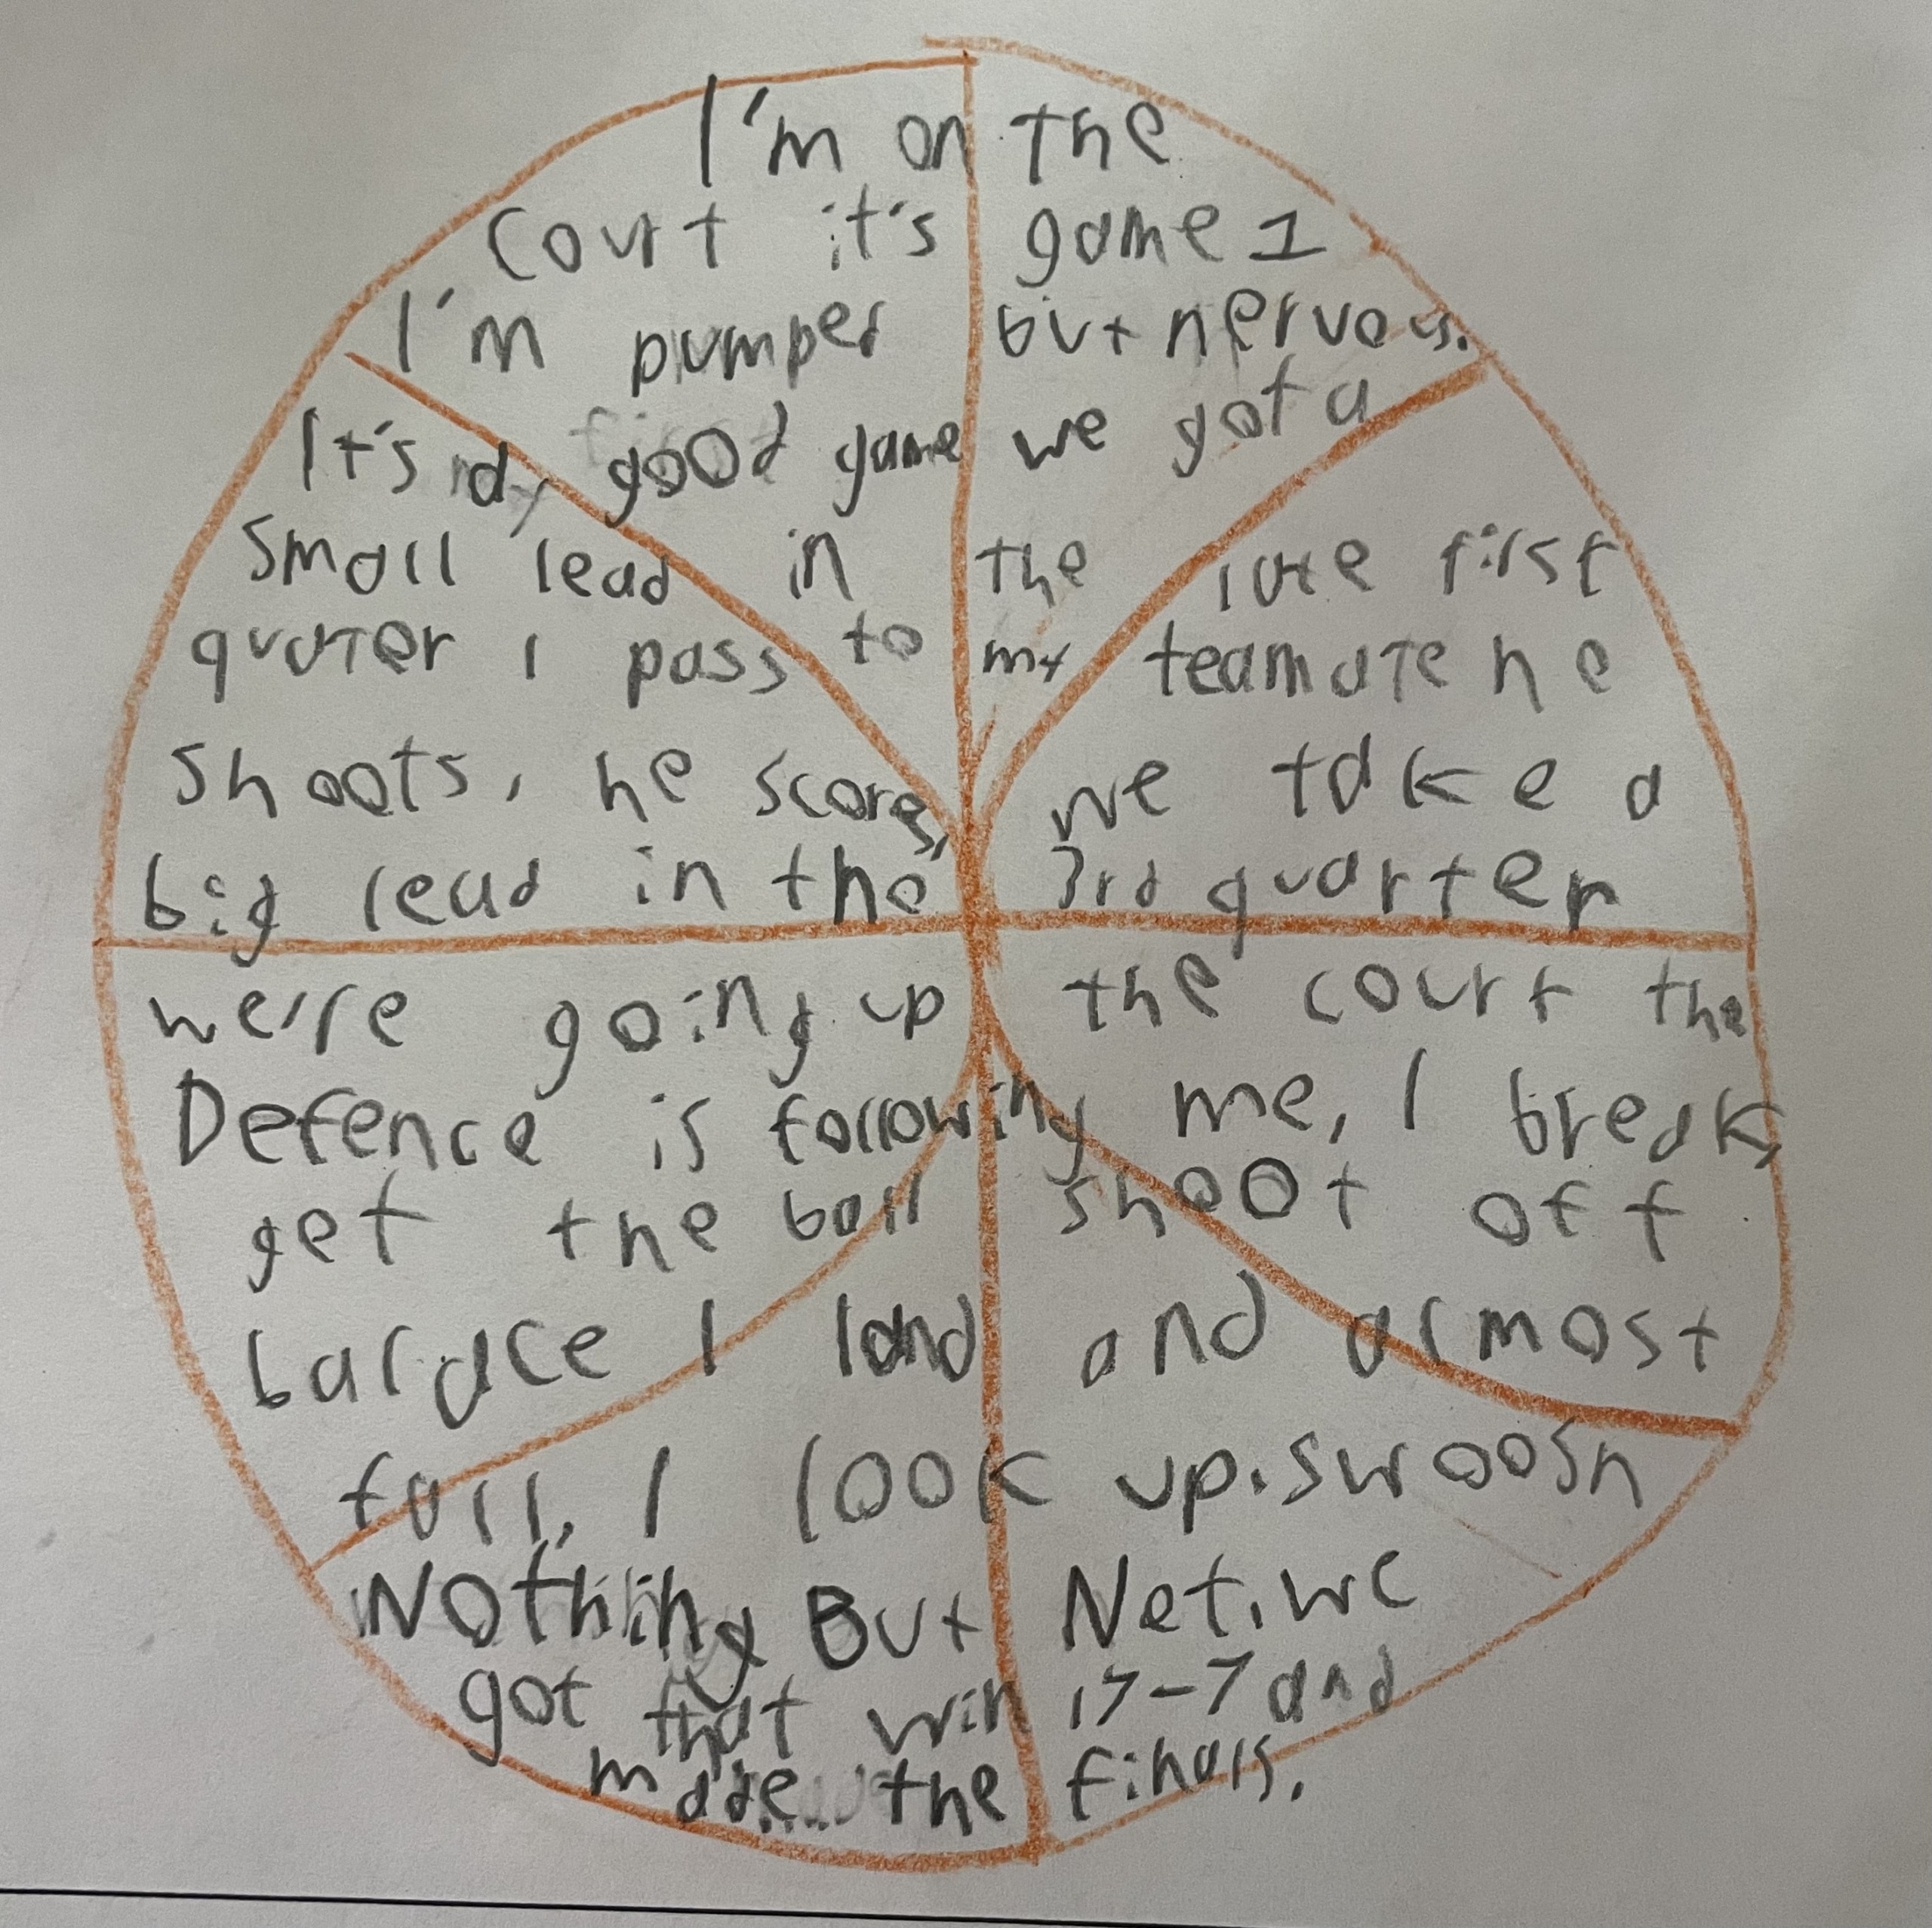 I'm on the
court it's game 1
I'm pumped but nervous.
It's a good game we got a
small lead in the late first
quater I pass to my teamate he
shoots, he scores, we take a
big lead in the 3rd quarter
we're going up the court the
Defence is following me, I break,
get the ball shoot off
balace I land and almost
fall, I look up. swoosh
Nothing But Net. we
got that win 17-7 and
made the finals.